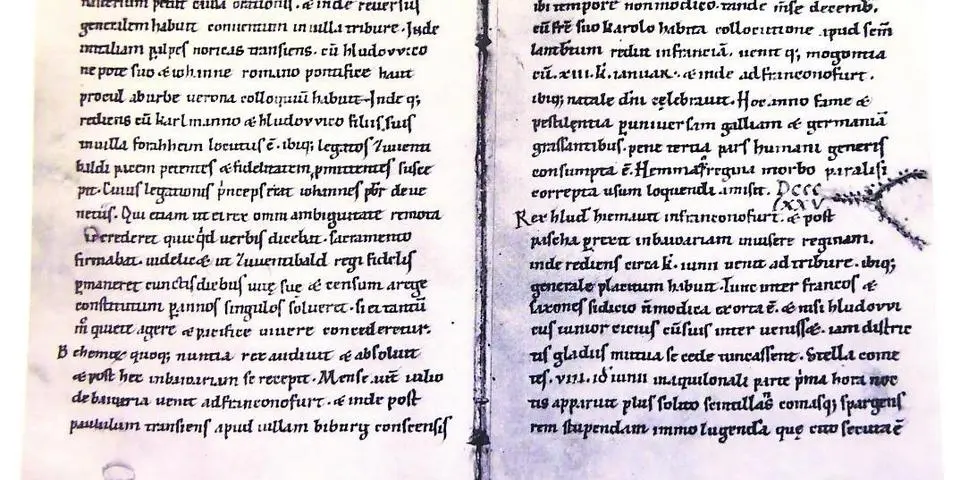 natterium petiit causa orationis. & inde reversus
generalem habuit conventum in villa tribure. Inde
in italiam p alpes noricas transiens. cū hludovvico
nepote suo & iohanne romano pontifice haut
procul ab urbe verona colloquiū habuit. Inde q;
rediens cū karlmanno & hludovvico filiis suis
in villa forahheim locutus ē. ibiq; legatos Zuuenti
baldi pacem petentes & fidelitatem pmittentes susce
pit. Cuius legationis pinceps erat iohannes pbr de ue
netiis. Qui etiam ut ei rex omni ambiguitate remota
crederet quicqd verbis dicebat. sacramento
firmabat. videlic& ut Zuuentibald regi fidelis
pmaneret cunctis diebus vitę suę & censum a rege
constitutum p annos singulos solueret. si ei tantū
m quiete agere & pacifice vivere concederetur.
Behemoꝝ quoq; nuntia rex audivit & absolvit
& post hec in baioariam se recepit. Mense aut iulio
de baiveria venit ad franconofurt. & inde post
paululum transiens apud villam biburg conscensis
ibi tempore non modico. tandē mse decemb.
cū fre suo karolo habita collocutione apud scm
lantbtum rediit in franciā. venit q; mogontia
cū .xiii. k. ianuar. & inde ad franconofurt.
ibiq; natale dni celebravit. Hoc anno fame &
pestilentia p universam galliam & germaniā
grassantibus. pene tertia pars humani generis
consumpta ē. Hemma regina morbo paralisi
correpta usum loquendi amisit. DCCC
LXXV
Rex hlud hiemavit in franconofurt. & post
pascha prexit in baioariam invisere reginam.
inde rediens circa k. iunii venit ad tribure. ibiq;
generale placitum habuit. Tunc inter francos &
saxones sidicio ñ modica exorta ē. & nisi hludovvi
cus iunior citius cū suis inter venisset. iam distric
tis gladiis mutua se cede truncassent. Stella come
tes. viii. id iunii in aquilonali parte pma hora noc
tis apparuit plus solito scintillas comasq; spargens
rem stupendam immo lugendā quę cito secuta ē